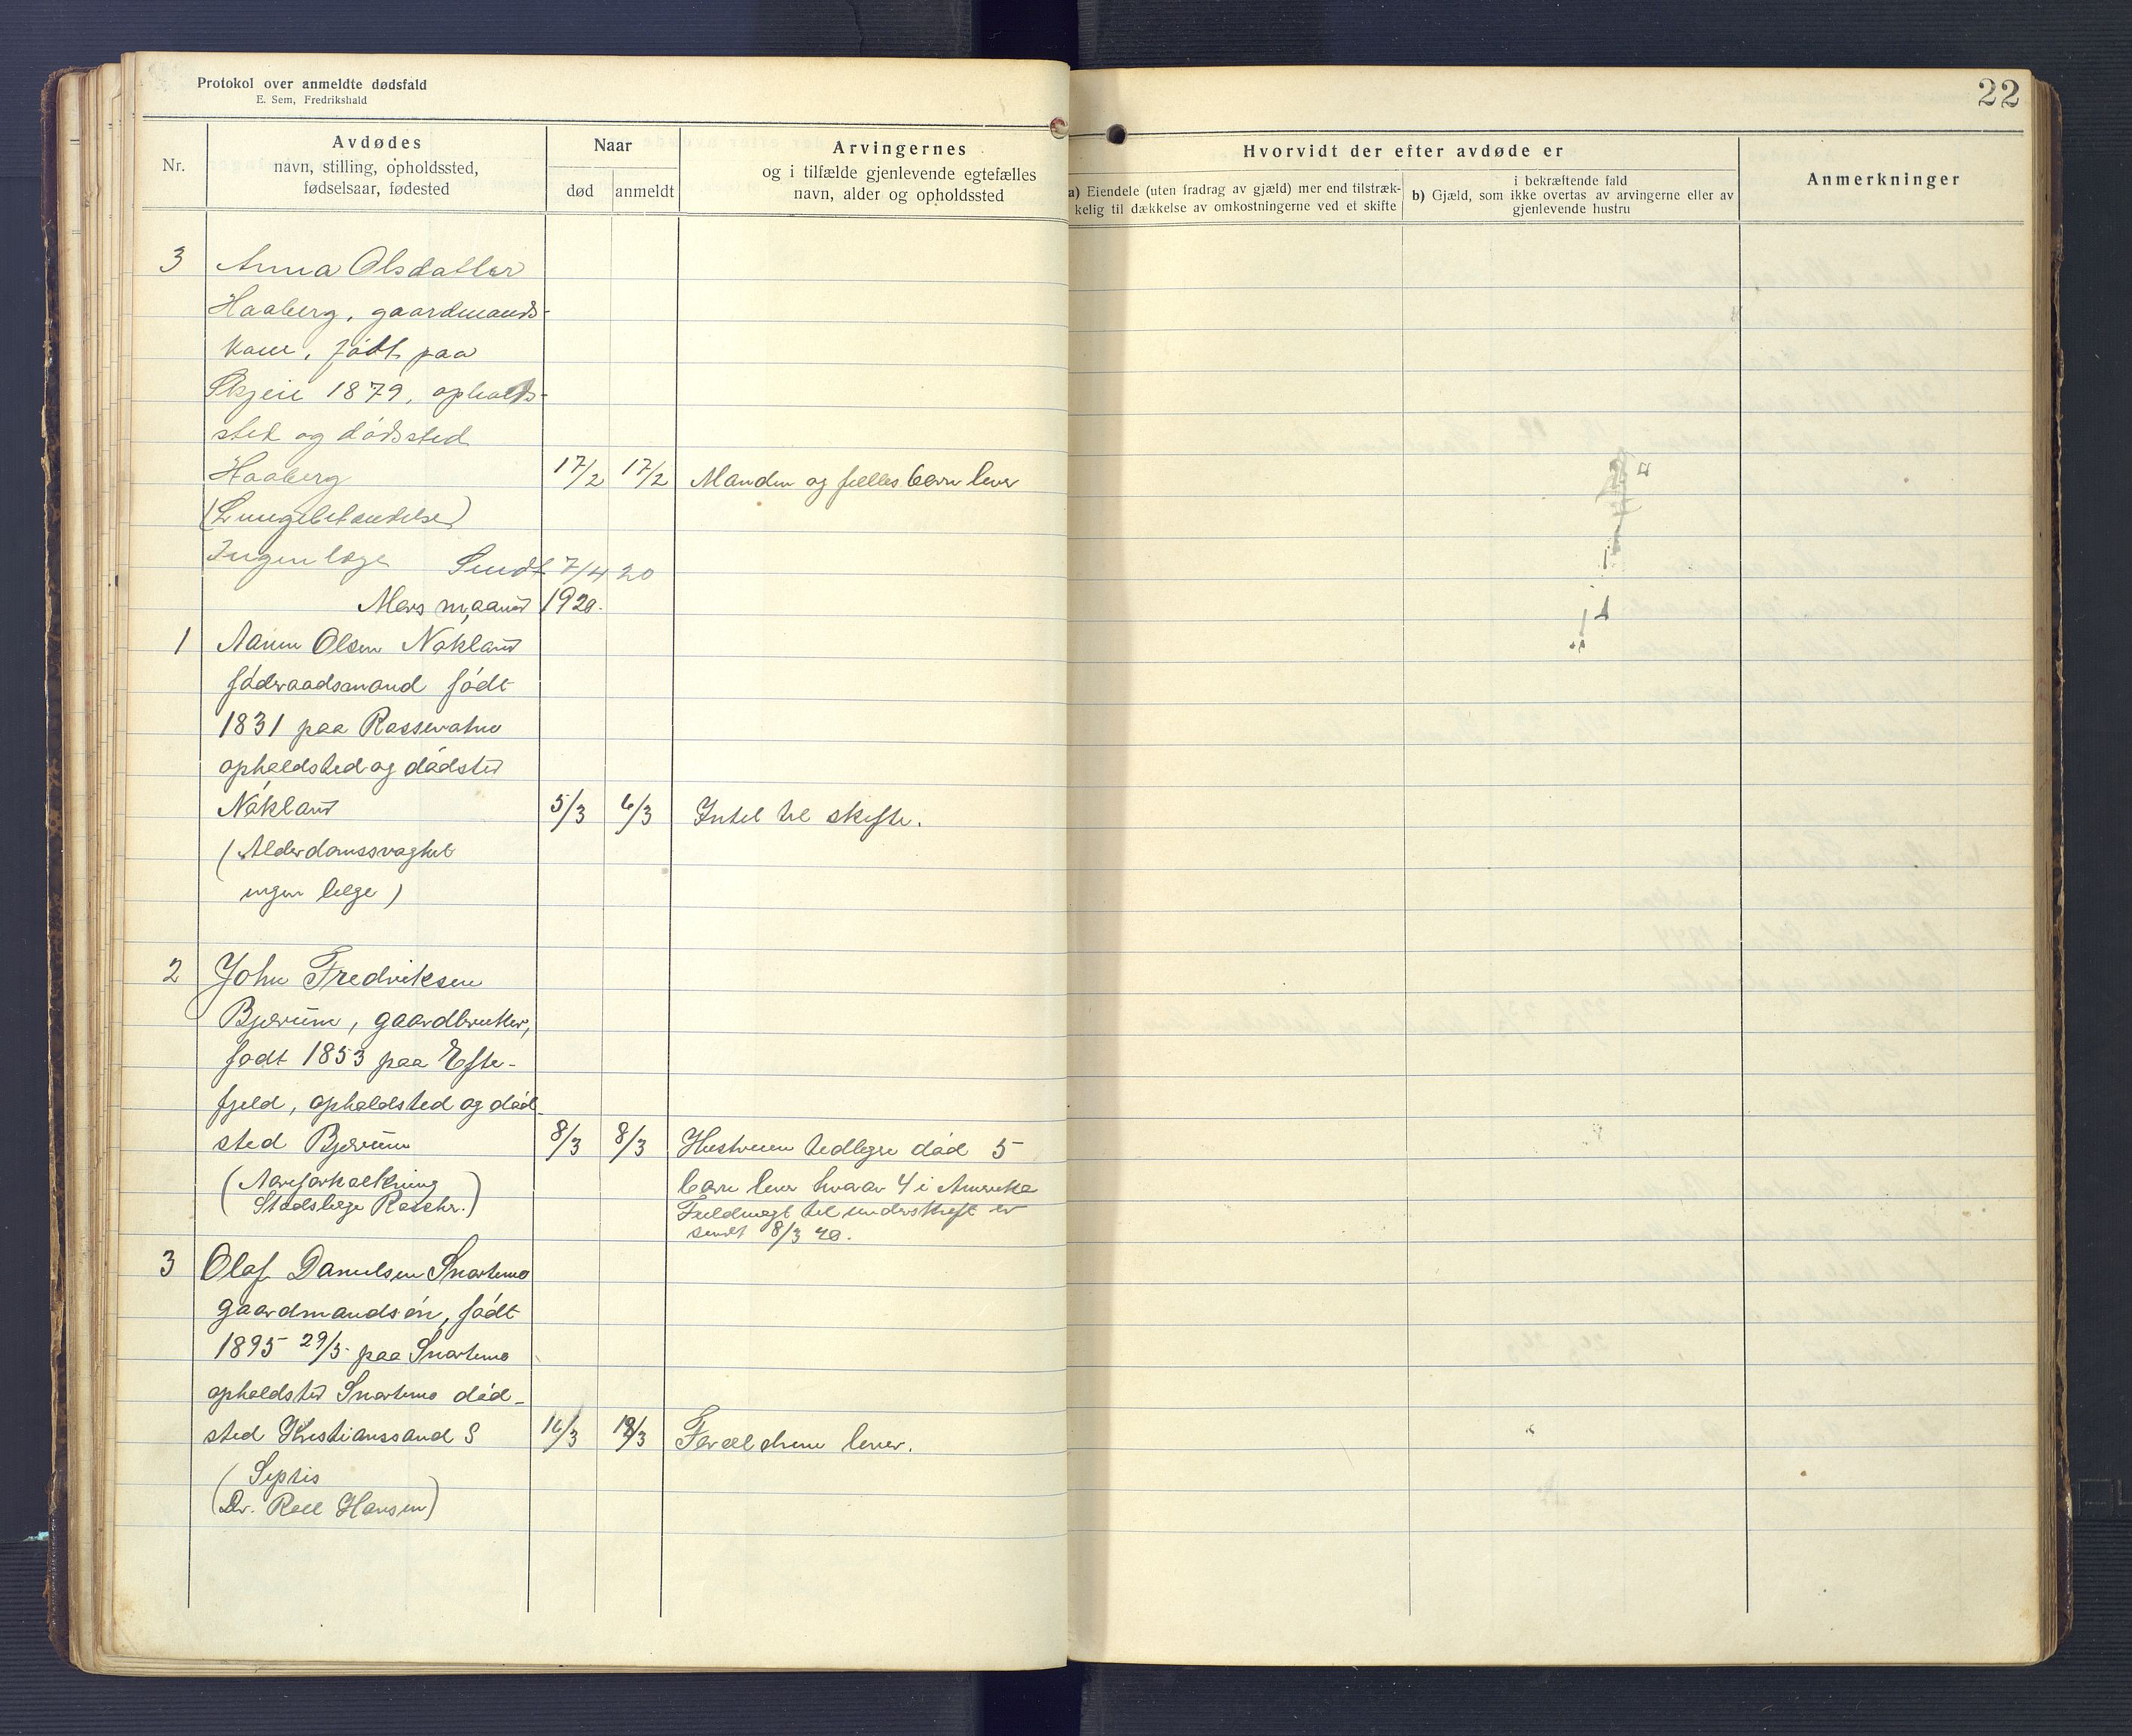 Protokol over anmeldte dødsfald
E. Sem, Fredrikshald
22
Nr.
Avdødes
navn, stilling, opholdssted,
fødselsaar, fødested
Naar
død
anmeldt
Arvingernes
og i tilfælde gjenlevende egtefælles
navn, alder og opholdssted
Hvorvidt der efter avdøde er
a) Eiendele (uten fradrag av gjæld) mer end tilstræk-
kelig til dækkelse av omkostningerne ved et skifte
i bekræftende fald
b) Gjæld, som ikke overtas av arvingerne eller av
gjenlevende hustru
Anmerkninger
3 Anna Olsdatter
Haaberg, gaardmands-
kone, født paa
Skjeie 1879, opholds-
sted og dødssted
Haaberg 17/2 17/2 Manden og felles barn lever
(Lungebetændelse)
Ingen læge Sendt 7/4 20
Mars maaned 1920.
1 Aanen Olsen Nøkland
føderaadsmand født
1831 paa Rossevatne
opholdsted og dødsted
Nøkland 5/3 6/3 Intet til skifte.
(Alderdomssvaghet
ingen læge)
2 John Fredriksen
Bjærum, gaardbruker,
født 1853 paa Efte-
fjeld, opholdsted og død-
sted Bjærum 8/3 8/3 Hustruen tidligere død 5
barn lever hvorav 4 i Amerika
Fuldmagt til underskrift er
sendt 8/3 20.
(Aareforkalkning
Stadslæge)
3 Olaf Danielsen Snartemo
gaardmandsøn, født
1895 29/5 paa Snartemo
opholdsted Snartemo død-
sted Kristianssand S 10/3 12/3 Forældrene lever.
(Septis
Dr. Roll Hansen)